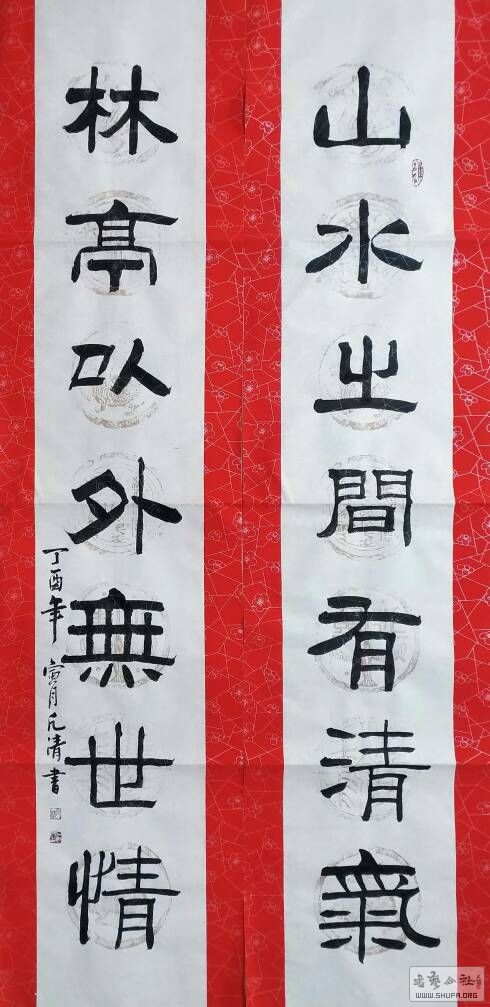 山水之間有清氣
林亭以外無世情
丁酉年 寅月凡清書
WWW.SHUFA.ORG